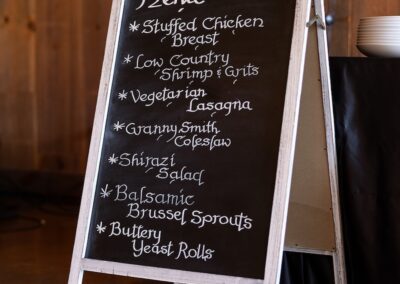 Menu
* Stuffed Chicken
Breast
* Low Country
Shrimp & Grits
* Vegetarian
Lasagna
* Granny Smith
Coleslaw
* Shirazi
Salad
* Balsamic
Brussel Sprouts
* Buttery
Yeast Rolls